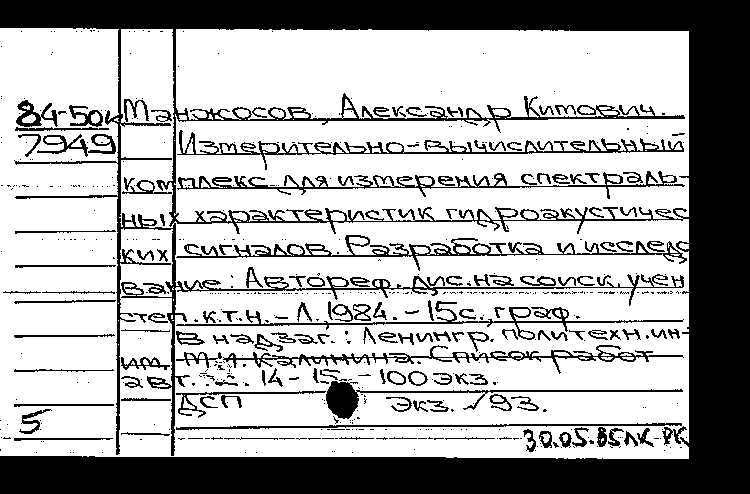 84-50к Манжосов, Александр Китович.
7949 Измерительно-вычислительный
комплекс для измерения спектраль-
ных характеристик гидроакустичес
ких сигналов. Разработка и исследо
вание: Автореф. дис. на соиск. учен
степ. к.т.н. - Л., 1984. - 15с., граф.
В надзаг.: Ленингр. политехн. ин-
им. М.И. Калинина. Список работ
авт. с. 14-15 - 100 экз.
ДСП экз. √93.
5
30.05.85 ЛК РК